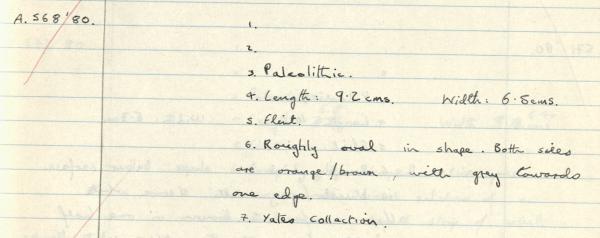 A.568'80.
1.
2.
3. Paleolithic.
4. Length: 9.2cms. Width: 6.5cms.
5. Flint.
6. Roughly oval in shape. Both sides
are orange/brown, with grey towards
one edge.
7. Yates Collection.